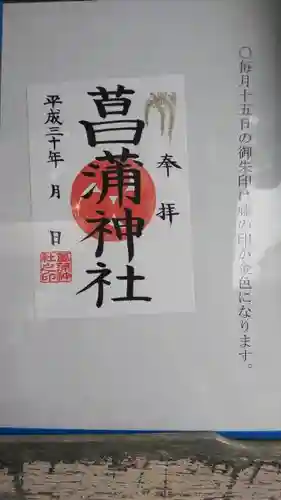 〇毎月十五日の御朱印は藤の印が金色になります。
奉拝
菖蒲神社
平成三十年 月 日
菖蒲神
社之印